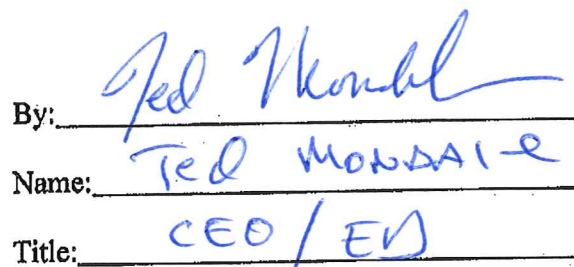 By: Ted Mondale
Name: Ted MONDALE
Title: CEO / ED